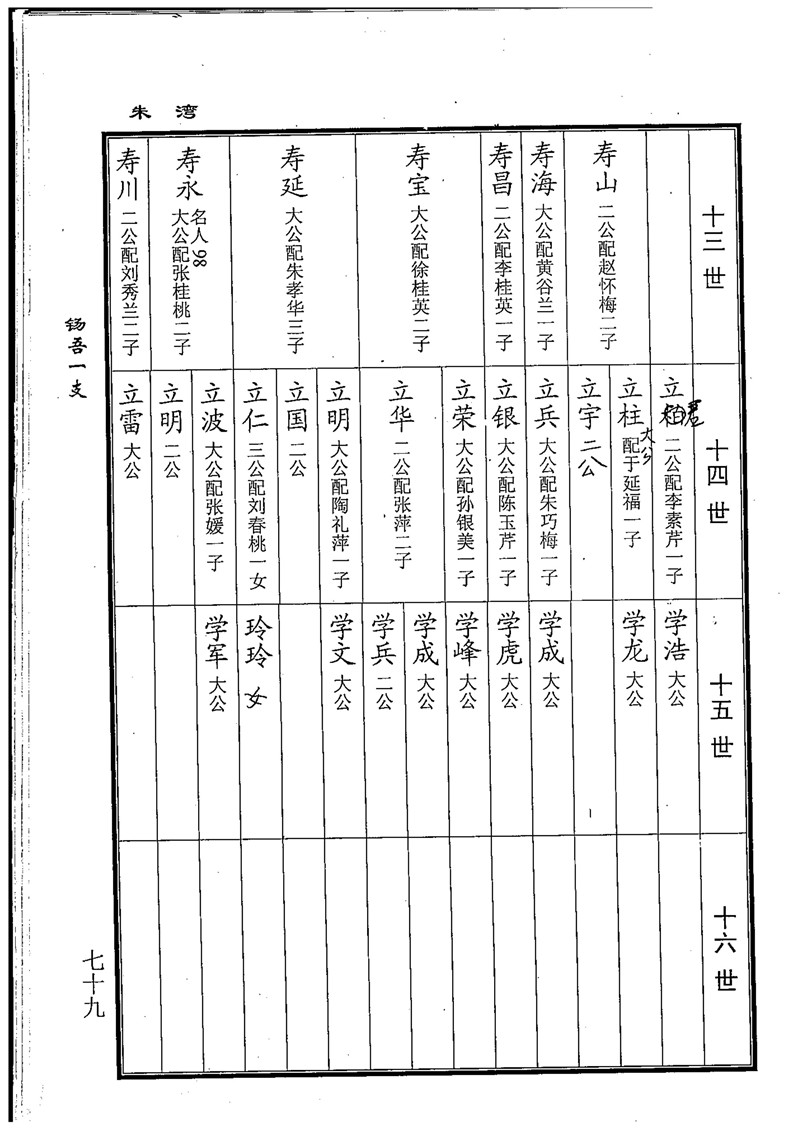 朱湾
十三世
寿山 二公配赵怀梅二子
寿海 大公配黄谷兰一子
寿昌 二公配李桂英一子
寿宝 大公配徐桂英二子
寿延 大公配朱孝华三子
寿永 名人98 大公配张桂桃二子
寿川 二公配刘秀兰二子
十四世
立 二公配李素芹一子
立柱 大公 配于延福一子
立宇 二公
立兵 大公配朱巧梅一子
立银 大公配陈玉芹一子
立荣 大公配孙银美一子
立华 二公配张萍二子
立明 大公配陶礼萍一子
立国 二公
立仁 三公配刘春桃一女
立波 大公配张媛一子
立明 二公
立雷 大公
十五世
学浩 大公
学龙 大公
学成 大公
学虎 大公
学峰 大公
学成 大公
学兵 二公
学文 大公
玲玲 女
学军 大公
十六世
钖吾一支
七十九